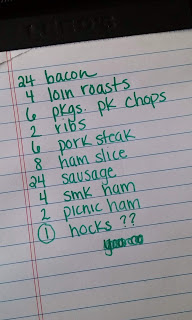 24 bacon
4 loin roasts
6 pkgs. pk chops
2 ribs
6 pork steak
8 ham slice
24 sausage
4 smk ham
2 picnic ham
1 hocks ??